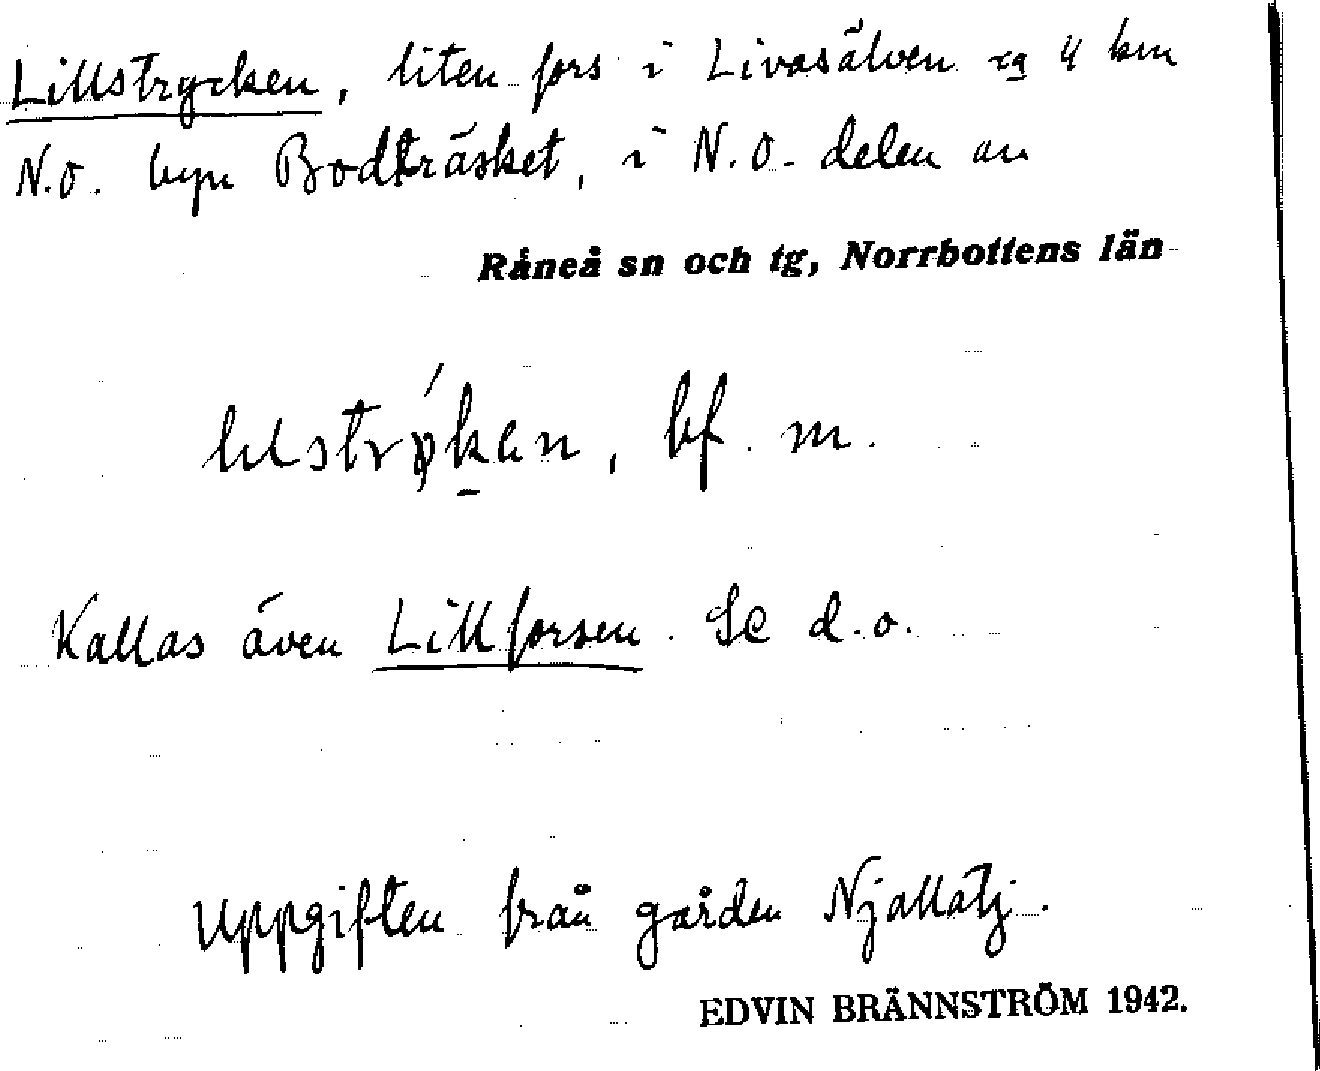 Lillstrycken, liten fors i Livasälven cg 4 km
N.O. byn Bodträsket, i N.O. delen av
Råneå sn och tg, Norrbottens län
bf. m.
Kallas även Lillforsen. Se d.o.
Uppgiften från gården Njallatj.
EDVIN BRÄNNSTRÖM 1942.